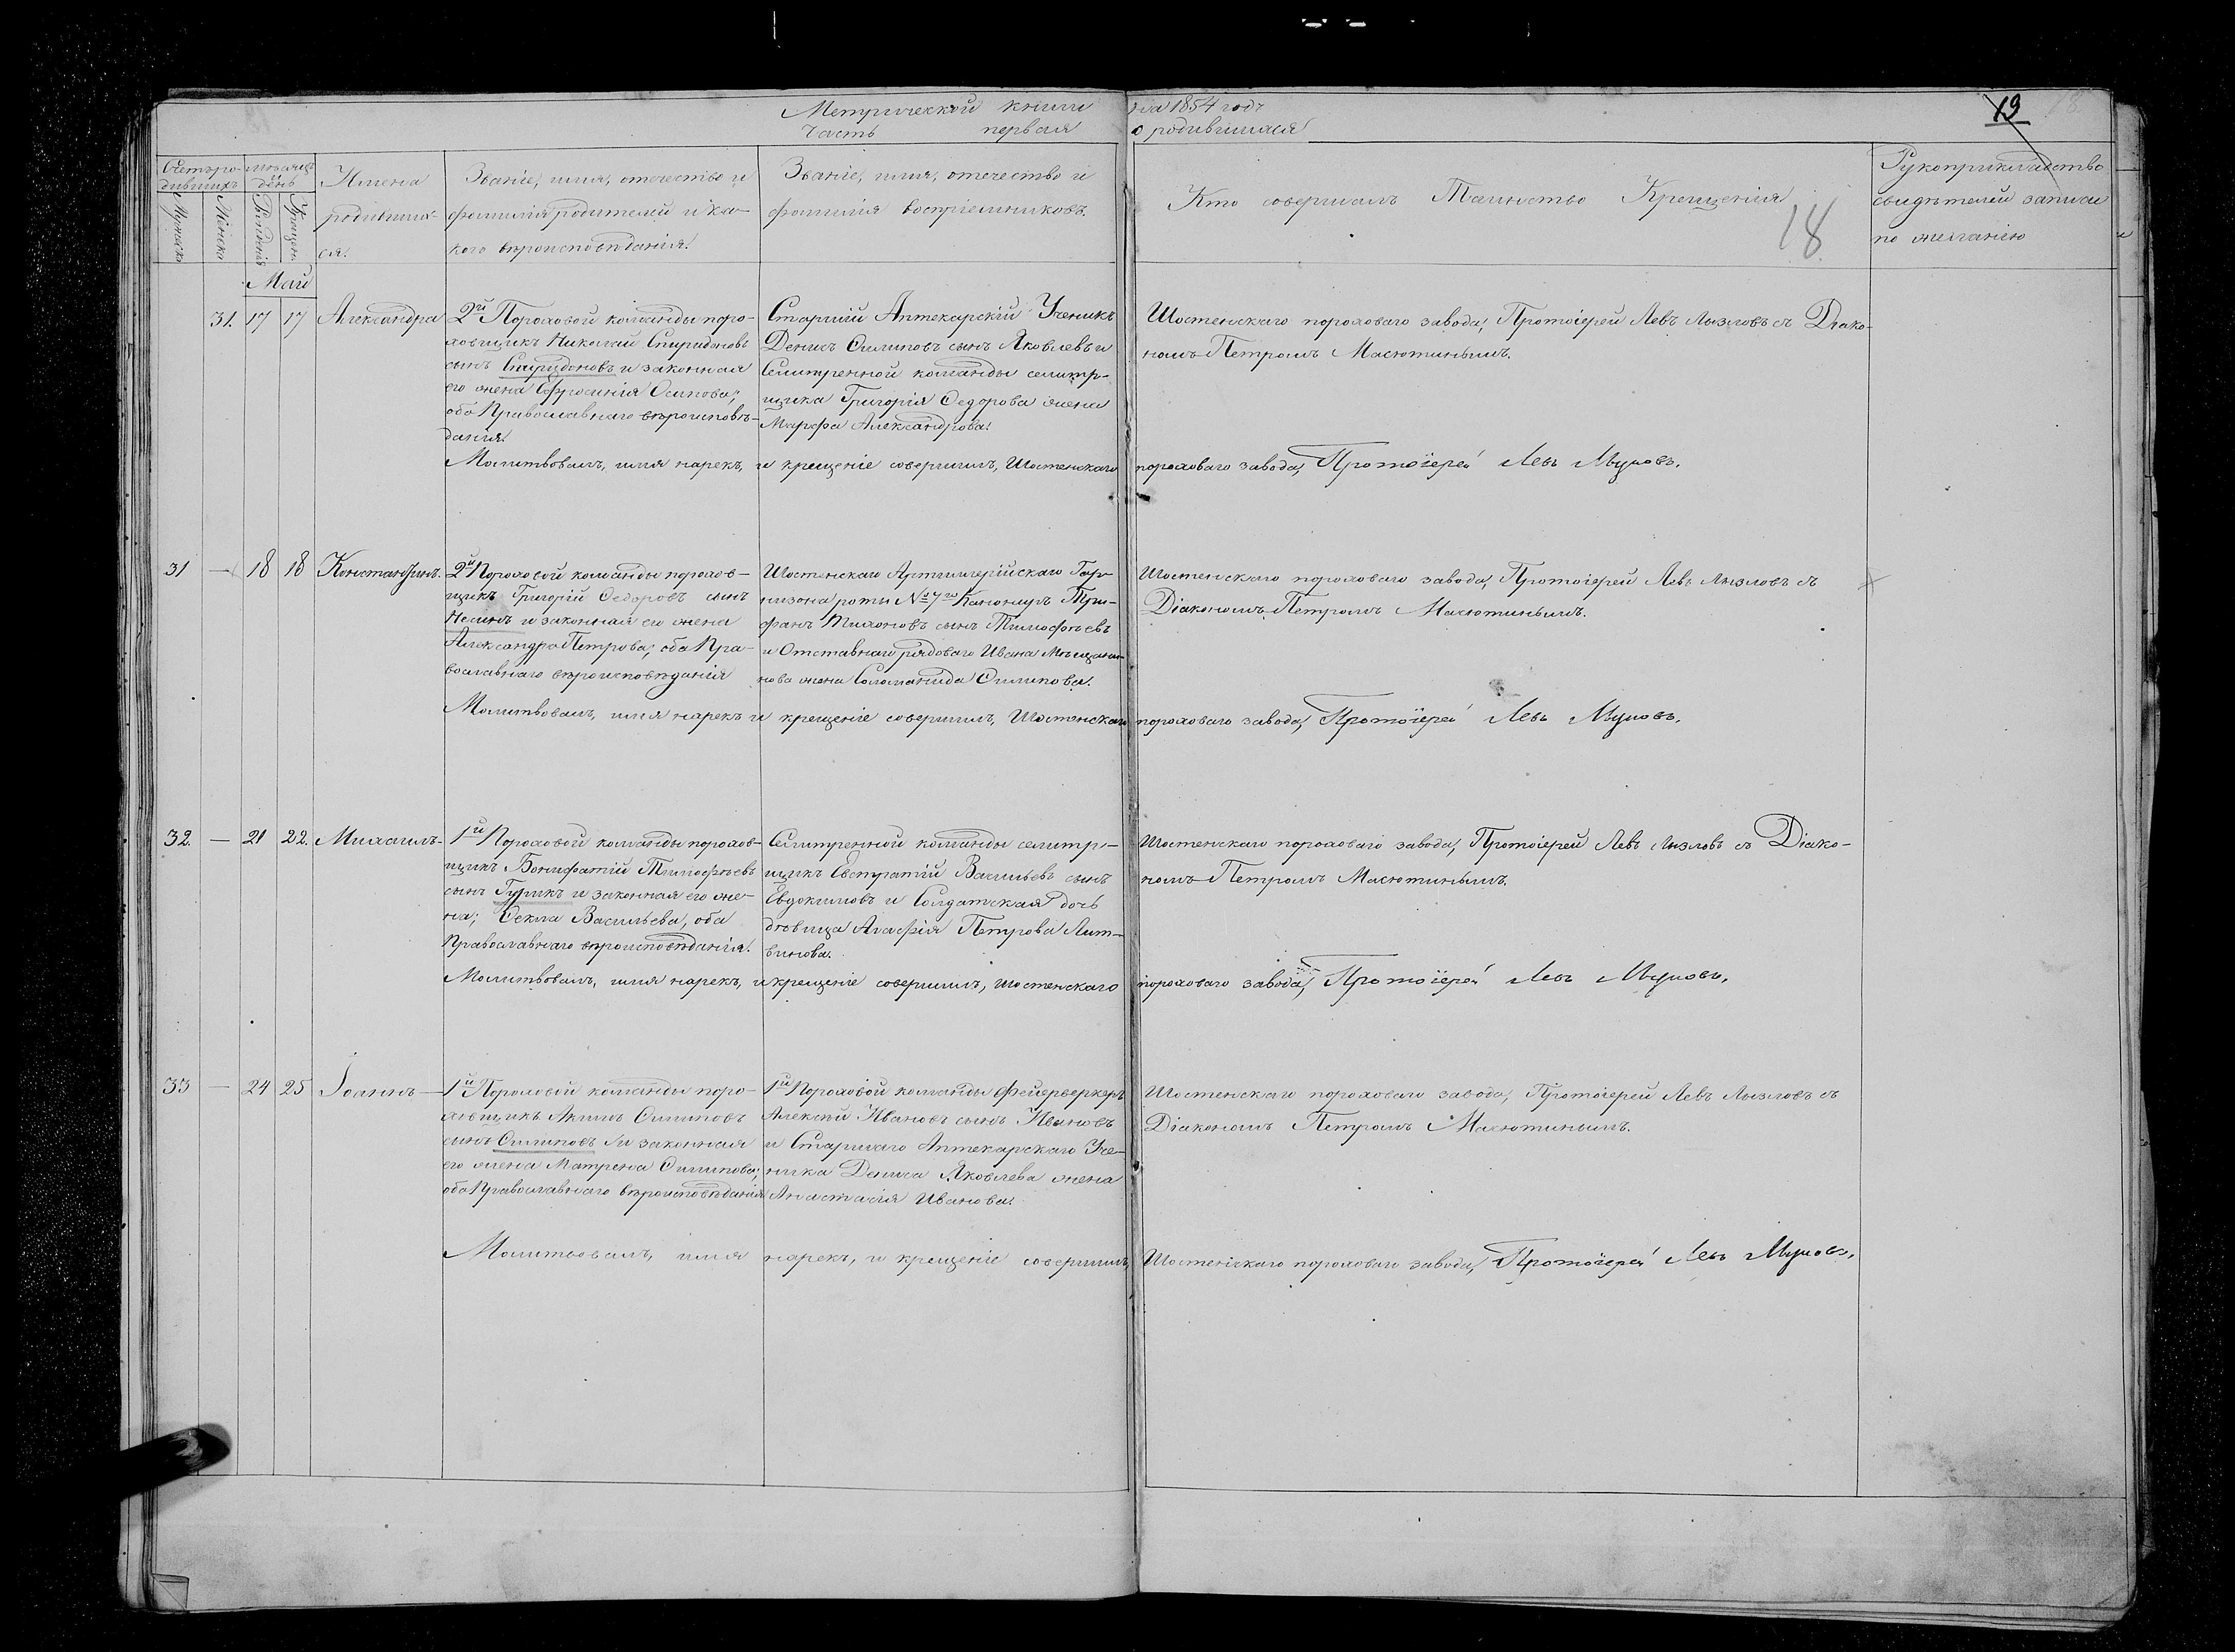 Метрической книги на 1854 годъ
Часть первая о родившихся
13
18
Счетъ ро-
дившихъ
Мужеска
Женска
Месяцъ и
день
Рожденія
Крещенія
Имена
родивших-
ся.
Званіе, имя, отчество и
фамилія родителей и ка-
кого вѣроисповѣданія.
Званіе, имя, отчество и
фамилія воспріемниковъ.
Кто совершалъ Таинство Крещенія
Рукоприкладство
свидѣтелей записи
по желанію
Май
31. 17 17 Александра
2й Пороховой команды поро-
ховщикъ Николай Спиридоновъ
сынъ Спиридоновъ и законная
его жена Ефросинія Осипова;
оба Православнаго вѣроисповѣ-
данія.
Старшій Аптекарскій Ученикъ
Денисъ Филиповъ сынъ Яковлевъ и
Селитренной команды селитр-
щика Григорія Федорова жена
Марфа Александрова.
Шостенскаго пороховаго завода, Протоіерей Левъ Лызловъ съ Діако-
номъ Петромъ Масютинымъ.
Молитвовалъ, имя нарекъ, и крещеніе совершилъ, Шостенскаго пороховаго завода, Протоіерей Левъ Лызловъ.
31 — 18 18 Константинъ.
2й Пороховой команды порохов-
щикъ Григорій Федоровъ сынъ
и законная его жена
Александра Петрова, оба Пра-
вославнаго вѣроисповѣданія
Шостенскаго Артиллерійскаго Гар-
низона роты №й 7го Канониръ Три-
фанъ Тихоновъ сынъ Тимофѣевъ
и Отставнаго рядоваго Ивана Мѣщани-
нова жена Соломанида Филипова.
Шостенскаго пороховаго завода, Протоіерей Левъ Лызловъ съ
Діакономъ Петромъ Масютинымъ.
Молитвовалъ, имя нарекъ и крещеніе совершилъ, Шостенскаго пороховаго завода, Протоіерей Левъ Лызловъ.
32. — 21 22. Михаилъ
1й Пороховой команды порохов-
щикъ Бонифатій Тимофѣевъ
сынъ Гуликъ и законная его же-
на; Фекла Васильева, оба
Православнаго вѣроисповѣданія.
Селитренной команды селитр-
щикъ Евстратій Васильевъ сынъ
Евдокимовъ и Солдатская дочь
дѣвица Агафія Петрова Лит-
винова.
Шостенскаго пороховаго завода, Протоіерей Левъ Лызловъ съ Діако-
номъ Петромъ Масютинымъ.
Молитвовалъ, имя нарекъ, и крещеніе совершилъ, Шостенскаго пороховаго завода, Протоіерей Левъ Лызловъ.
33 — 24 25 Іоаннъ
1й Пороховой команды поро-
ховщикъ Акимъ Филиповъ
сынъ Филиповъ и законная
его жена Матрена Филипова;
оба Православнаго вѣроисповѣданія
1й Пороховой команды Фейерверкеръ
Алексѣй Ивановъ сынъ Ивановъ
и Старшаго Аптекарскаго Уче-
ника Дениса Яковлева жена
Анастасія Иванова.
Шостенскаго пороховаго завода, Протоіерей Левъ Лызловъ съ
Діакономъ Петромъ Масютинымъ.
Молитвовалъ, имя нарекъ, и крещеніе совершилъ, Шостенскаго пороховаго завода, Протоіерей Левъ Лызловъ.